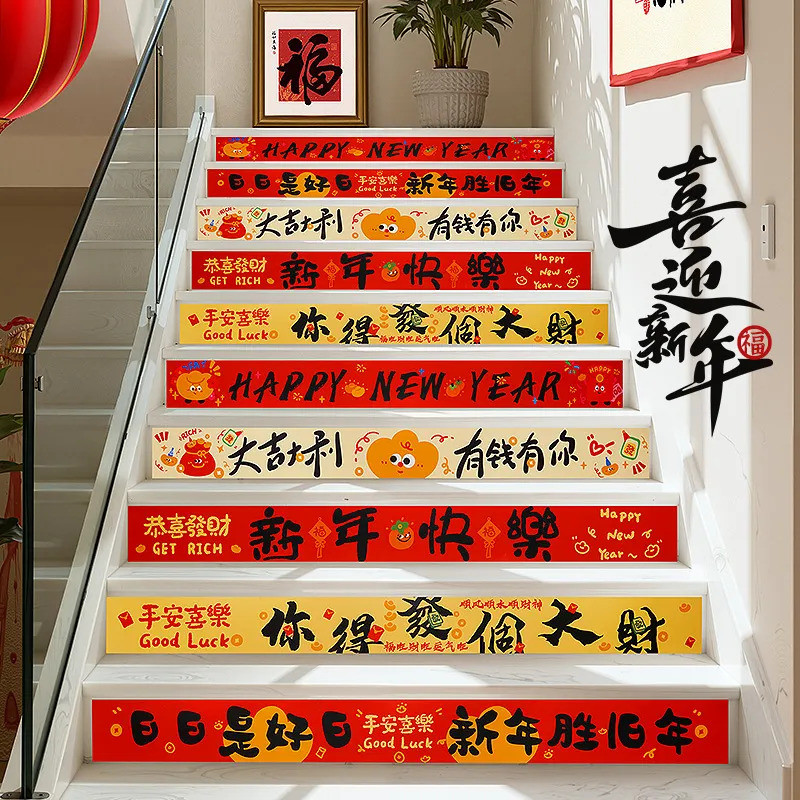 福
HAPPY NEW YEAR
日日是好日 平安喜樂 Good Luck 新年胜旧年
大吉大利 有钱有你
RICH
恭喜發財
GET RICH
新年快樂
Happy
New
Year~
平安喜樂
Good Luck
你得發個大財
順风順水順財神
福啦财啦运气啦
HAPPY NEW YEAR
RICH
大吉大利 有钱有你
恭喜發財
GET RICH
新年快樂
Happy
New
Year~
平安喜樂
Good Luck
你得發個大財
順风順水順財神
福啦财啦运气啦
日日是好日 平安喜樂 Good Luck 新年胜旧年
喜迎新年
福